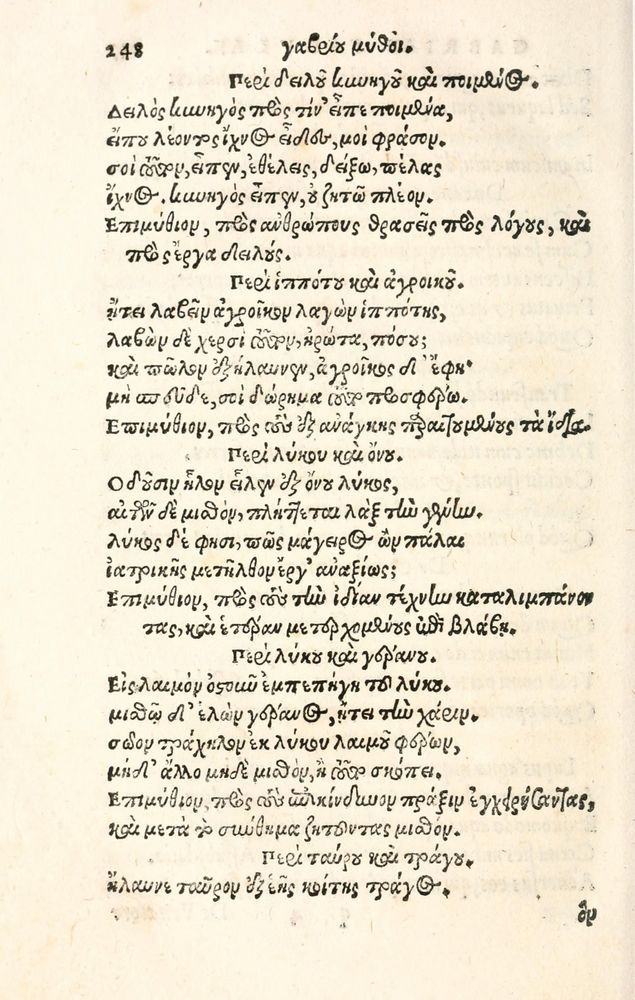 248 γαβρίου μῦθοι.
Περὶ δειλοῦ κυνηγοῦ καὶ ποιμένος.
Δειλὸς κυνηγὸς πρὸς τίν' εἶπε ποιμένα,
εἴπου λέοντος ἴχνος εἶδες, μοι φράσον.
σοὶ αὐτὸν, εἶπεν, ἐθέλεις, δείξω, πέλας
ἴχνος. κυνηγὸς εἶπεν, οὐ ζητῶ πλέον.
Ἐπιμύθιον, πρὸς ἀνθρώπους θρασεῖς πρὸς λόγους, καὶ
πρὸς ἔργα δειλούς.
Περὶ ἱππότου καὶ ἀγροίκου.
ᾔτει λαβεῖν ἀγροῖκον λαγὼν ἱππότης,
λαβὼν δὲ χερσὶ αὐτὸν, ἠρώτα, πόσου;
καὶ πῶλον ἐξήλαυνεν, ἀγροῖκος δ' ἔφη·
μὴ σπεῦδε, σοὶ δώρημα αὐτὸν προσφέρω.
Ἐπιμύθιον, πρὸς τοὺς ἐξ ἀνάγκης χαριζομένους τὰ ἴδια.
Περὶ λύκου καὶ ὄνου.
Ὀδοῦσιν ἧλον εἷλεν ἐξ ὄνου λύκος,
αἰτῶν δὲ μισθὸν, πλήττεται λὰξ τὴν γένυν.
λύκος δέ φησι, πῶς μάγειρος ὢν πάλαι
ἰατρικῆς μετῆλθον ἔργ' ἀναξίως;
Ἐπιμύθιον, πρὸς τοὺς τὴν ἰδίαν τέχνην καταλιμπάνον
τας, καὶ ἑτέραν μετερχομένους ἐπὶ βλάβῃ.
Περὶ λύκου καὶ γεράνου.
Εἰς λαιμὸν ὀστοῦν ἐμπεπήγη τοῦ λύκου.
μισθῷ δ' ἑλὼν γέρανος, ᾔτει τὴν χάριν.
σῶον τράχηλον ἐκ λύκου λαιμοῦ φέρων,
μηδ' ἄλλο μηδὲ μισθὸν, ἢ αὐτὸν σκόπει.
Ἐπιμύθιον, πρὸς τοὺς ἐπικίνδυνον πρᾶξιν ἐγχειρίζαντας,
καὶ μετὰ τὸ σύνθημα ζητοῦντας μισθόν.
Περὶ ταύρου καὶ τράγου.
ἤλαυνε ταῦρον ἐξ ἑῆς κοίτης τράγος.
ὃν